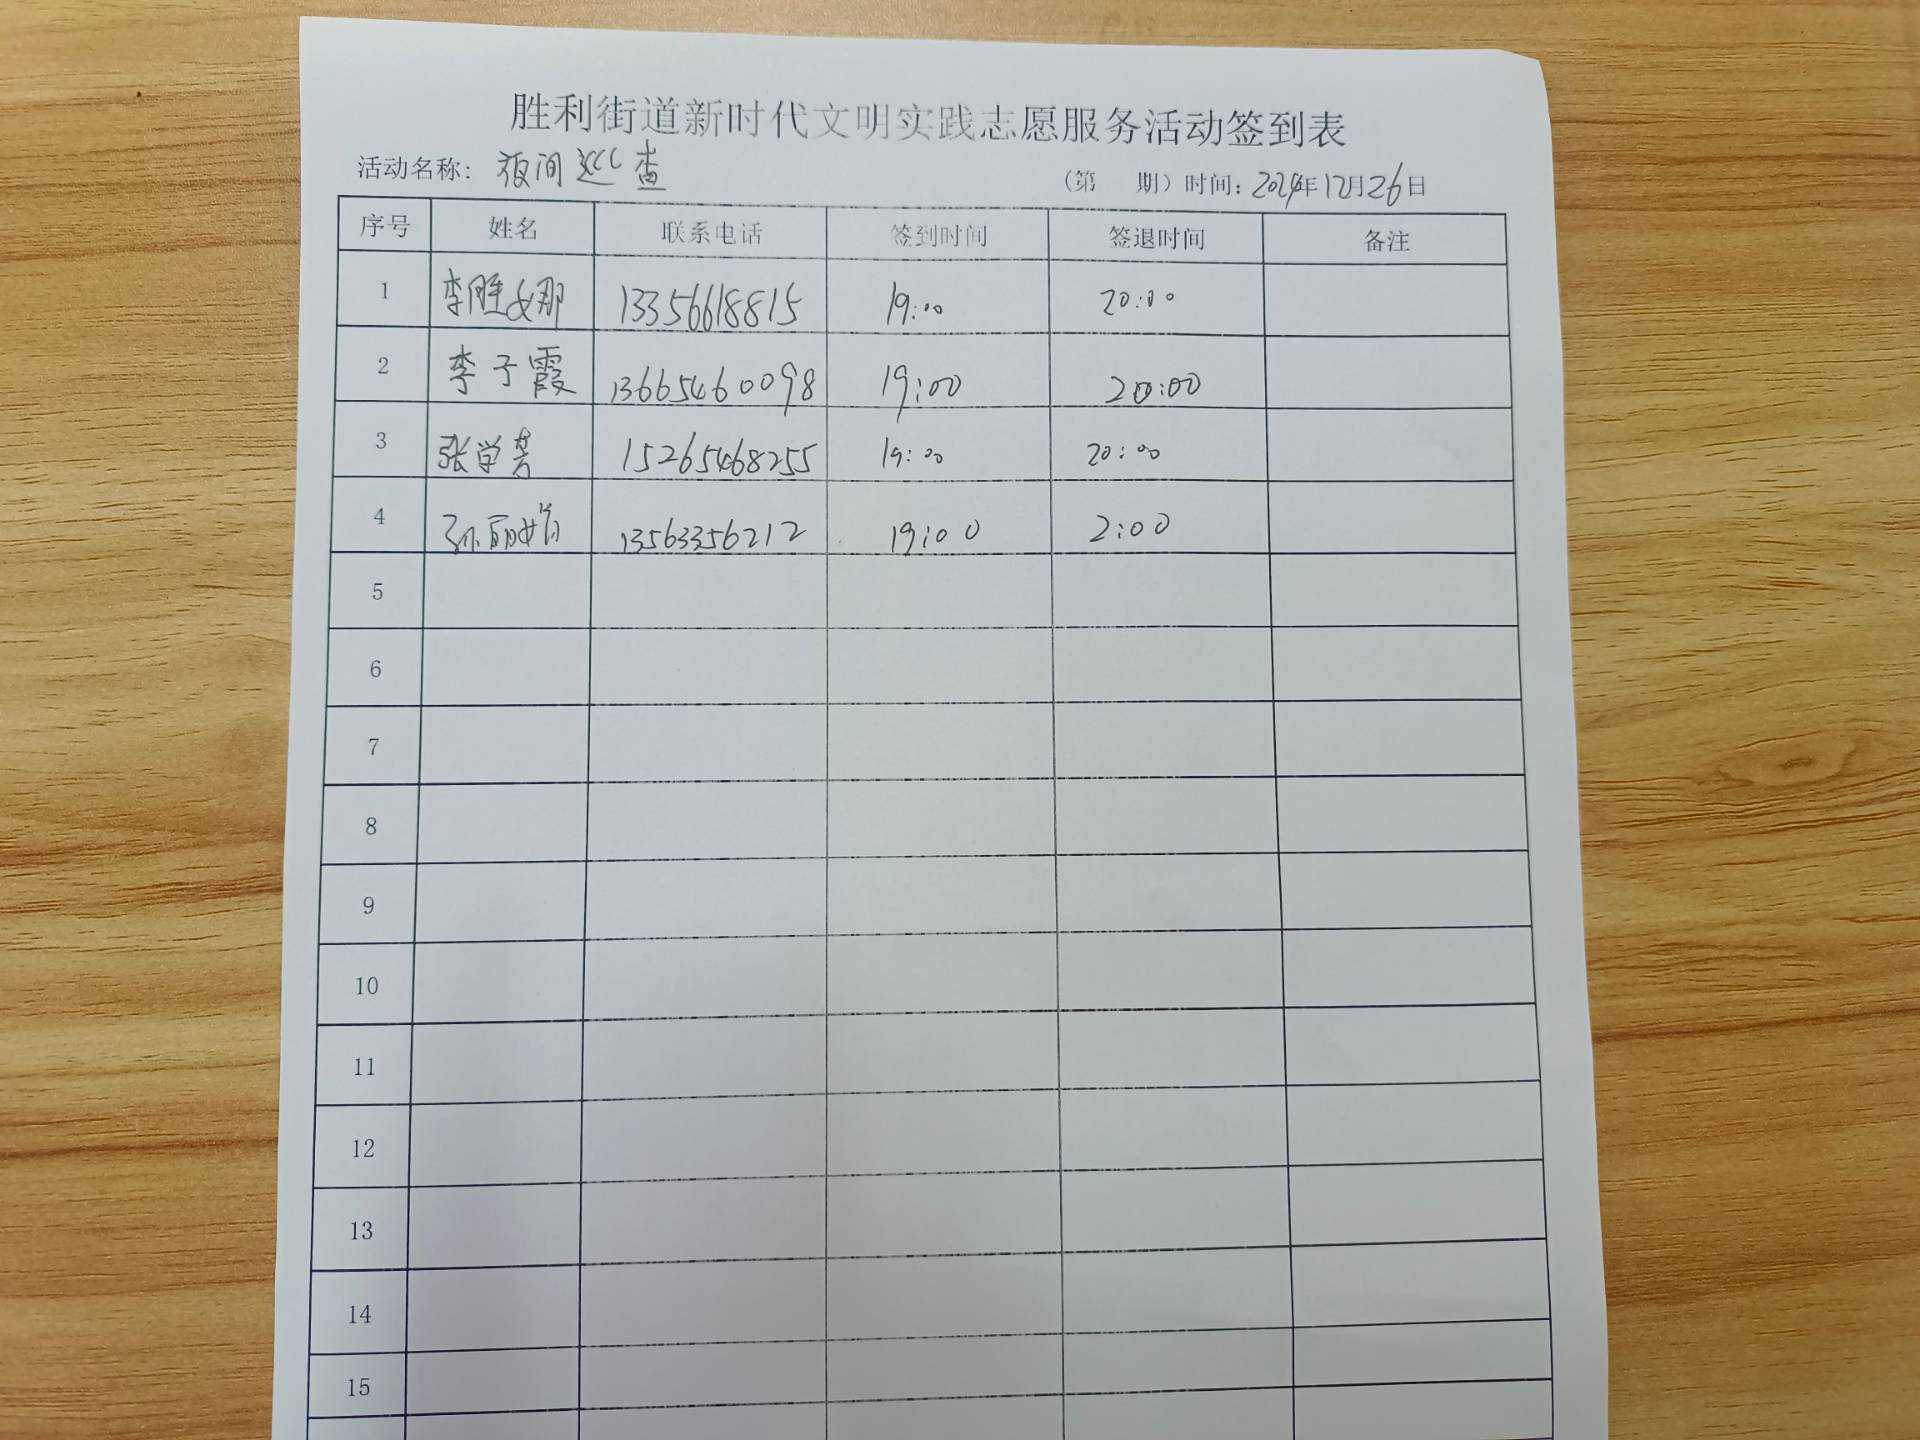 胜利街道新时代文明实践志愿服务活动签到表
活动名称：夜间巡查 （第 期）时间：2024年12月26日
序号 姓名 联系电话 签到时间 签退时间 备注
1 李胜娜 13356618815 19:00 20:00
2 李子霞 13665460098 19:00 20:00
3 张学芳 15265468255 19:00 20:00
4 孙丽娟 13563356212 19:00 2:00
5
6
7
8
9
10
11
12
13
14
15